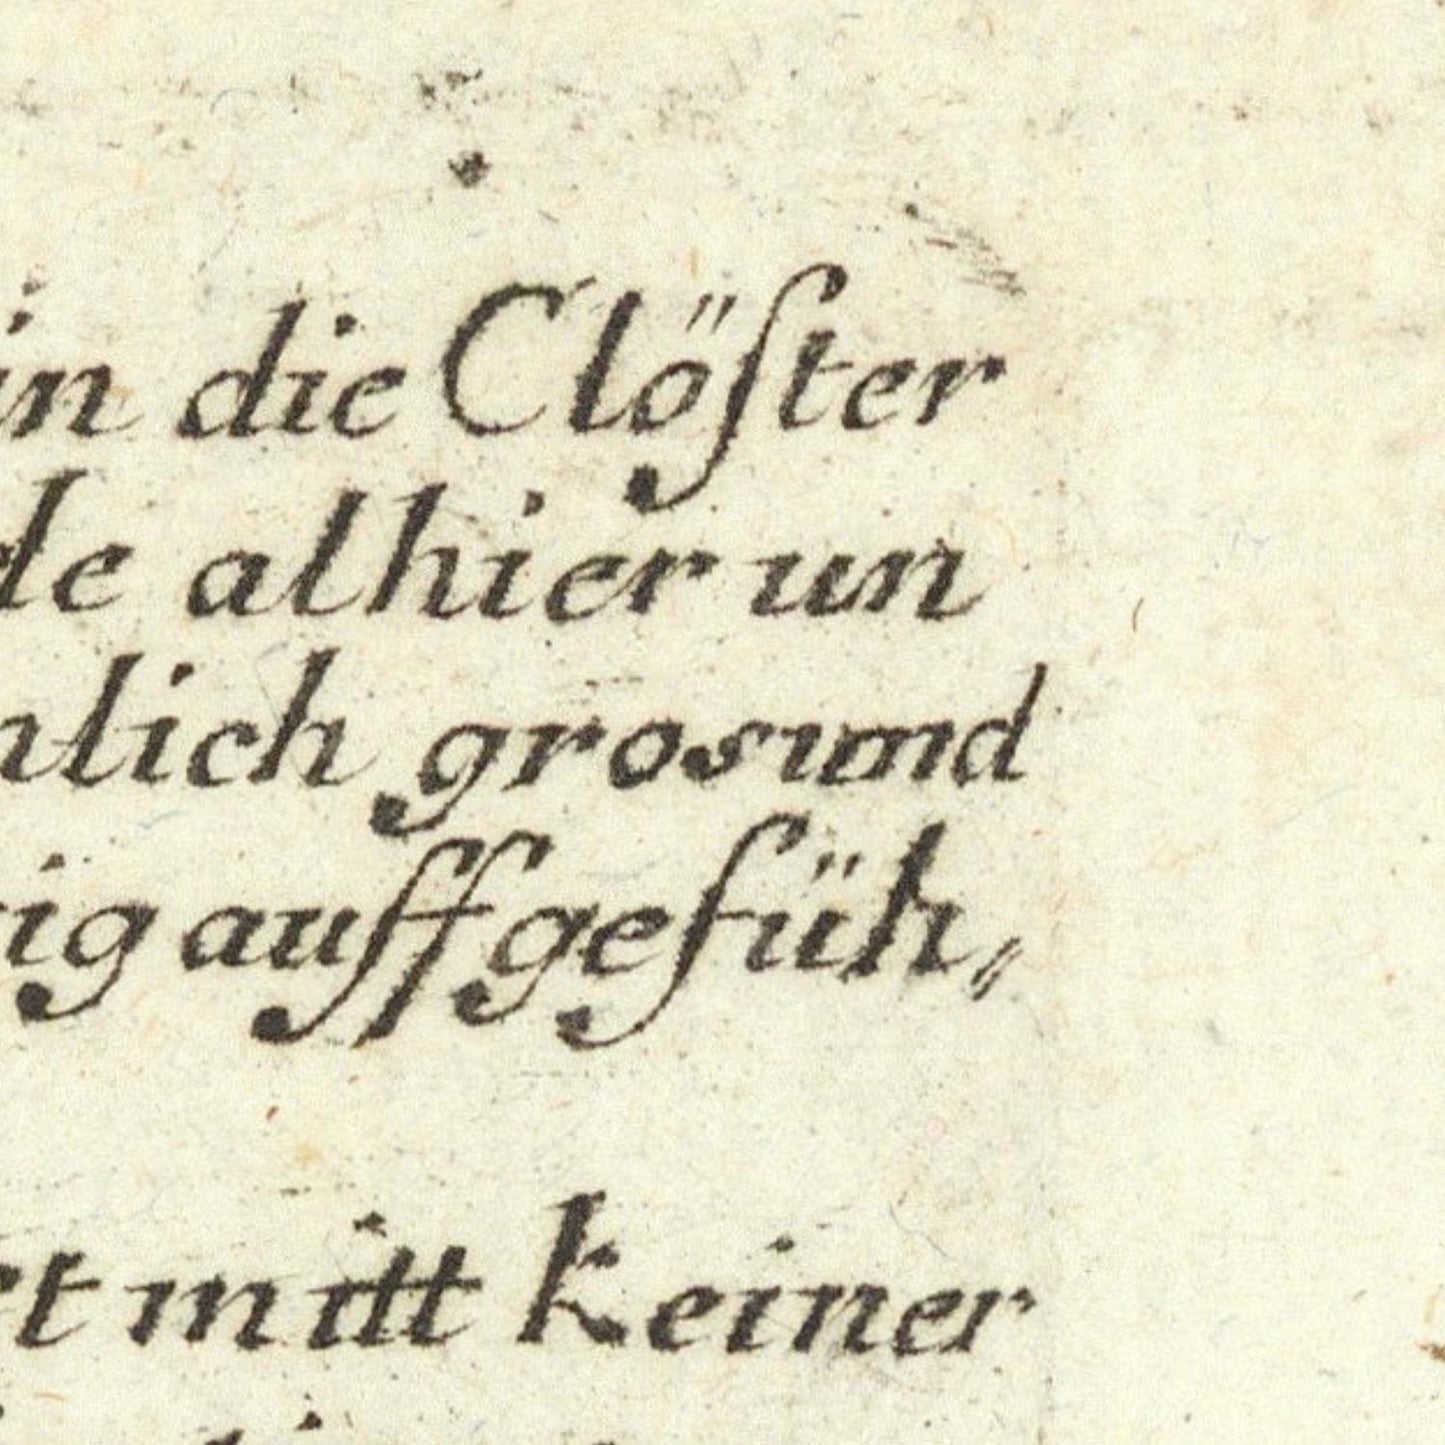 in die Clöſter
de alhier un
nlich gros und
ig auffgefüh,,
et mitt keiner